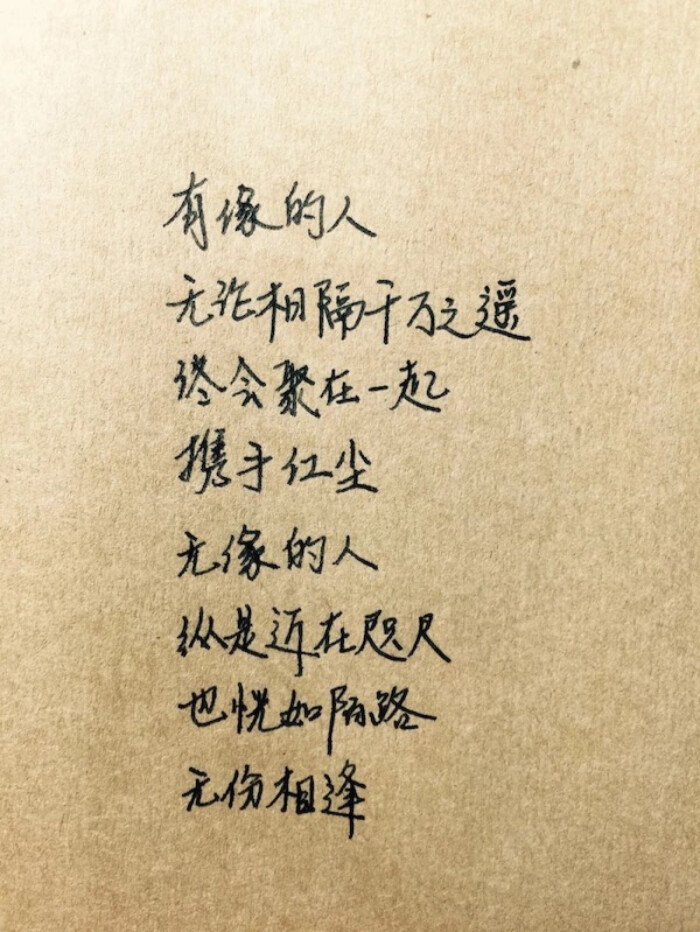 有缘的人
无论相隔千万之遥
终会聚在一起
携手红尘
无缘的人
纵是近在咫尺
也恍如陌路
无份相逢